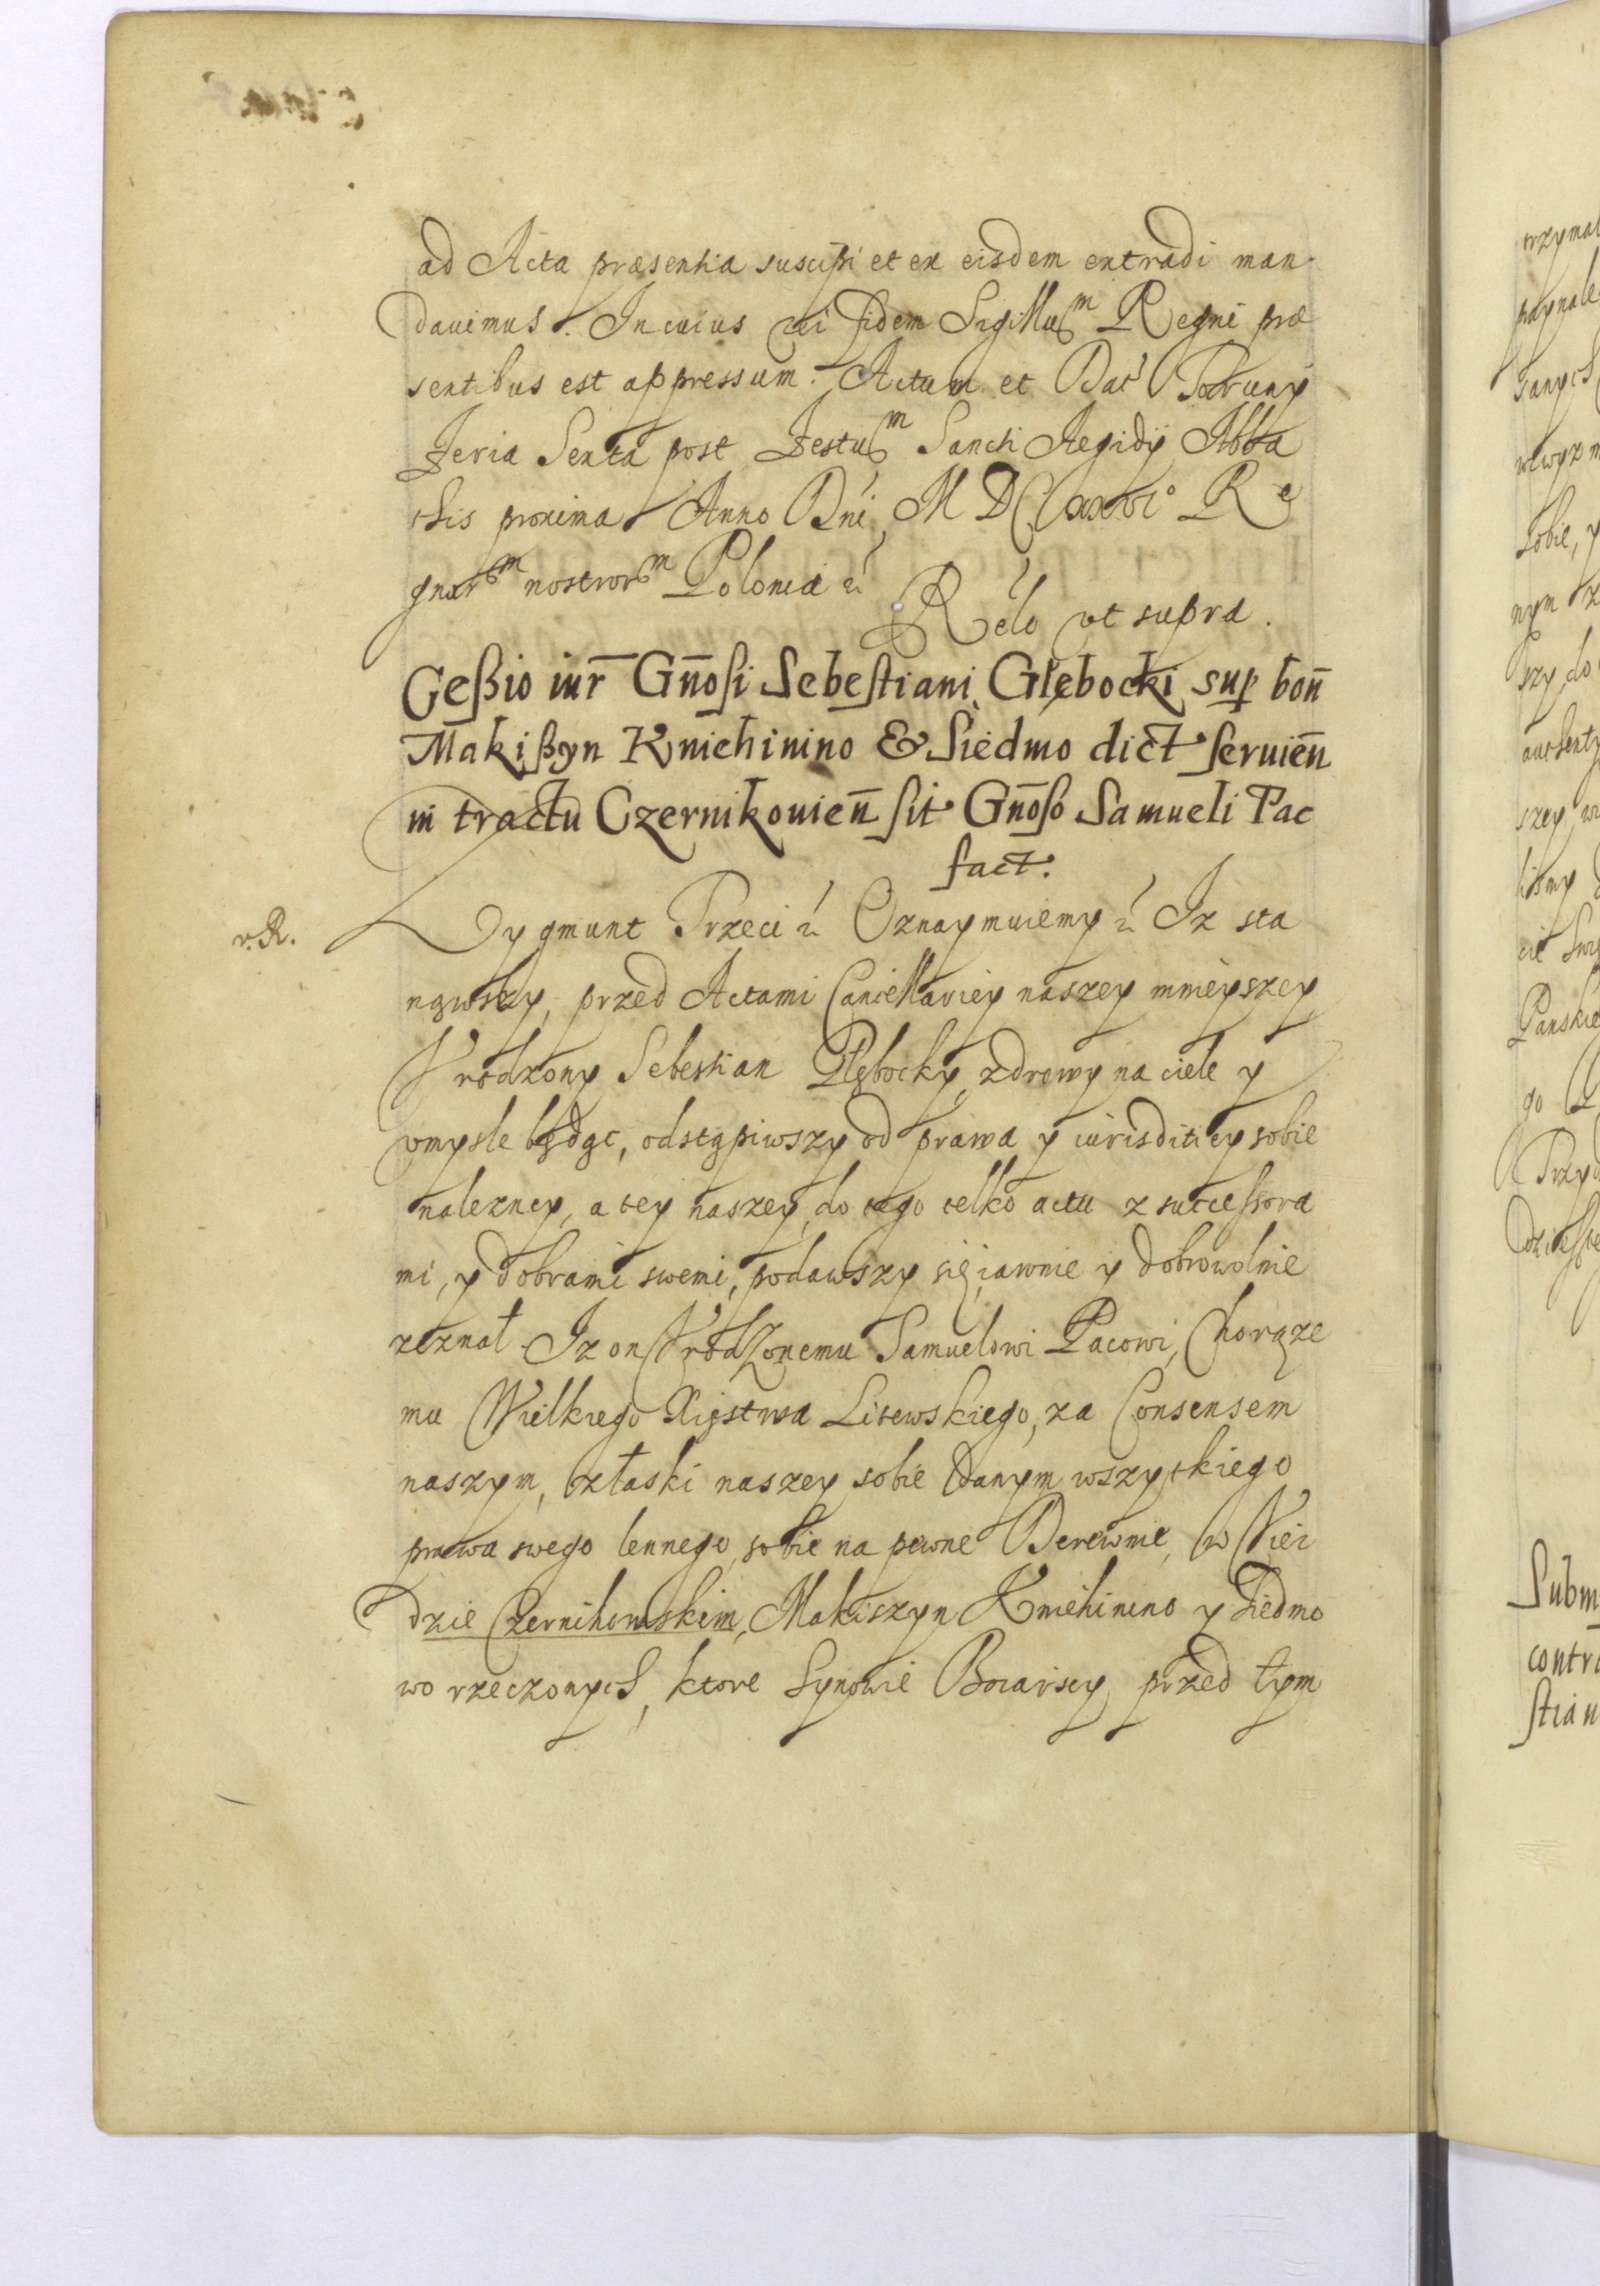 ad Acta præsentia suscipi et ex eisdem extradi man-
dauimus. In cuius rei fidem Sigillum Regni præ
sentibus est appressum. Actum et Dat Toruny
Feria Sexta post Festum Sancti Aegidij Abba
this proxima Anno Dni M D C xxvi° Re
gnorm nostrorm Poloniæ &
Relo vt supra.
Ceßio iur Gnosi Sebestiani Głębocki sup bon
Makißyn Kniehinino & Siedmo dict seruien
in tractu Czernikouien sit Gnoso Samueli Pac
fact.
r. R.
Zygmunt Trzeci & Oznaymuiemy & Iz sta
nąwszy, przed Actami Cancellariey naszey mnieyszey
Vrodzony Sebestian Głębocky, zdrowy na ciele y
vmysle będąc, odstąpiwszy od prawa y iurisditiey sobie
nalezney, a tey naszey, do tego telko actu z successora
mi, y dobrami swemi, podawszy się, iawnie y dobrowolnie
zeznał. Iz on Vrodzonemu Samuelowi Pacowi, Chorąze
mu Wielkiego Xięstwa Litewskiego, za Consensem
naszym, złaski naszey sobie danym wszyskiego
prawa swego lennego, sobie na pewne Derewnie, w Viez
dzie Czernihowskim, Makiszyn Kniehinino y Siedmo
wo rzeczonych, ktore Synowie Boiarscy przed tym